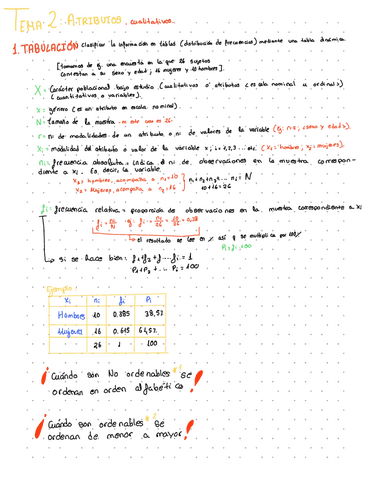 TEMA 2: ATRIBUTOS, cualitativos.
1. TABULACIÓN clasificar la información en tablas (distribución de frecuencias) mediante una tabla dinámica
[tomamos de ej. una encuesta en la que 26 sujetos
contestan a su sexo y edad; 16 mujeres y 10 hombres].
X = Carácter poblacional bajo estudio (cualitativos o atributos < escala nominal u ordinal >)
(cuantitativos, o variables).
x = género (es un atributo en escala nominal).
N = tamaño de la muestra en este caso es 26.
r = nº de modalidades de un atributo o nº de valores de la variable (ej: r=2, (sexo y edad)).
xi = modalidad del atributo o valor de la variable x; i=1,2,3... etc. (x1 = hombre; x2 = mujeres).
ni = frecuencia absoluta: indica el nº de observaciones en la muestra, correspon-
diente a xi. Es decir, la variable
x1 = hombres, acompaña a n1 = 10
x2 = Mujeres, acompaña a n2 = 16
n1 + n2 + n3 ... ni = N
10 + 16 = 26
fi = frecuencia relativa = proporción de observaciones en la muestra correspondiente a xi
fi = ni/N ej: fi = 10/26 = 0,38
el resultado se lee en % así q se multiplica por 100%
Pi = fi · 100
si se hace bien: f1 + f2 + f... fi = 1
P1 + P2 + ... Pi = 100
Ejemplo:
xi ni fi Pi
Hombres 10 0.385 38,5%
Mujeres 16 0.615 61,5%
26 1 100
¡Cuándo son No ordenables se
ordenan en orden alfabético!
¡Cuándo son ordenables se
ordenan de menor a mayor!